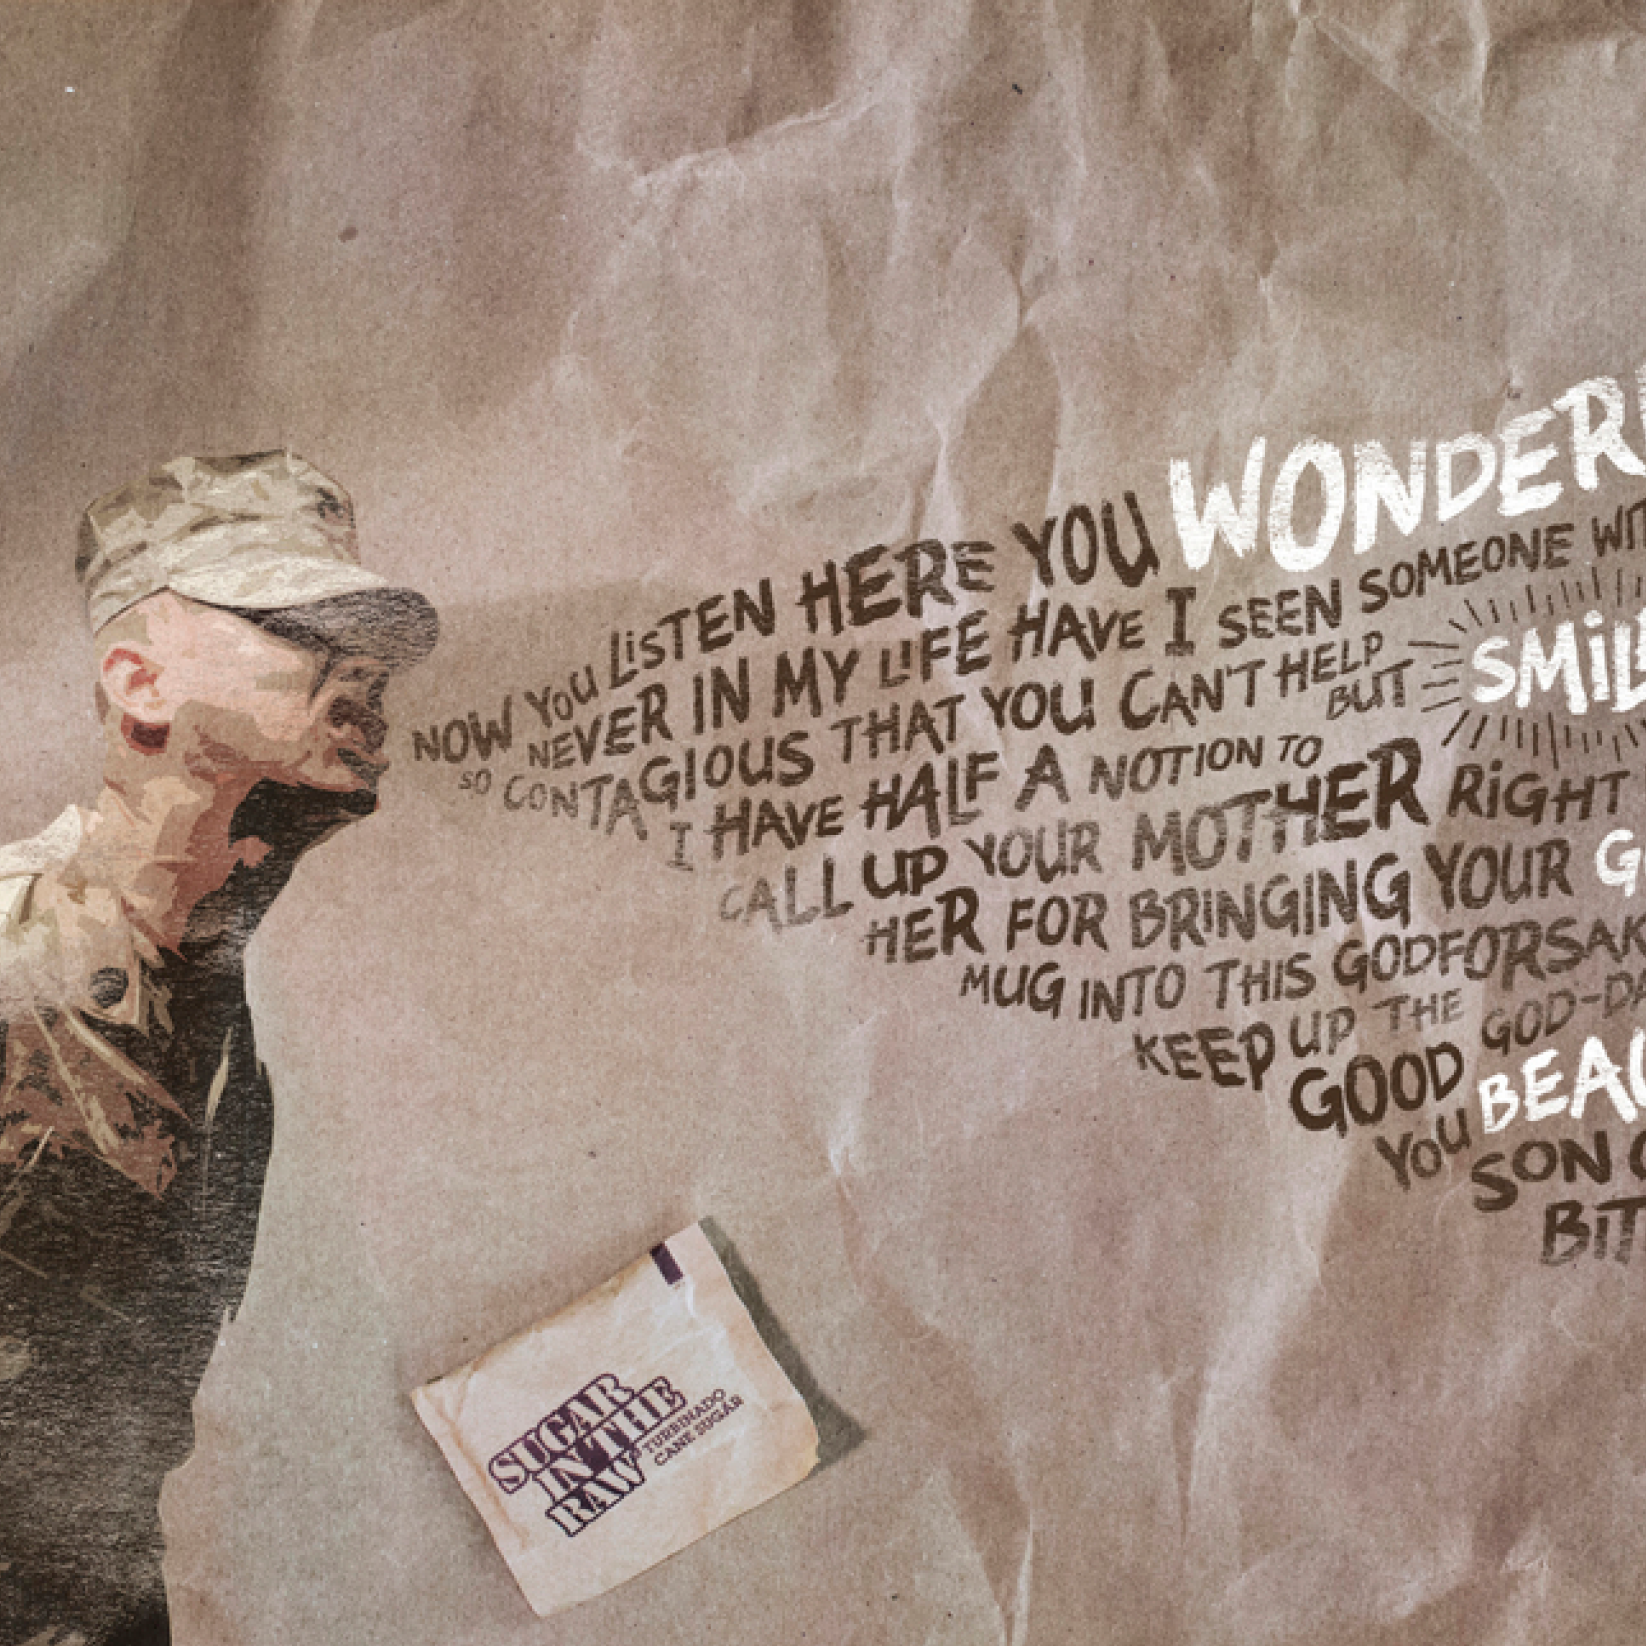 NOW YOU LISTEN HERE YOU
NEVER IN MY LIFE HAVE I SEEN SOMEONE
SO CONTAGIOUS THAT YOU CAN'T HELP
BUT
I HAVE HALF A NOTION TO
CALL UP YOUR MOTHER RIGHT
HER FOR BRINGING YOUR
MUG INTO THIS
KEEP UP THE
GOOD
YOU
SON
SUGAR
IN THE
RAW
TURBINADO
CANE SUGAR